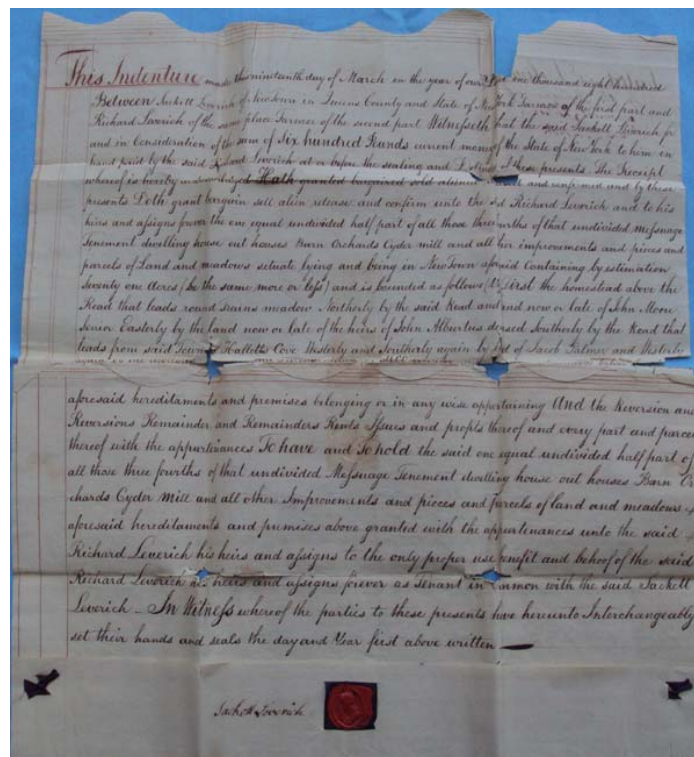 This Indenture made this nineteenth day of March in the year of our one thousand eight hundred
Between Sackett Leverich of NewTown in Queens County and State of New York Farmer of the first part and
Richard Leverich of the same place Farmer of the second part Witnesseth that the said Sackett Leverich for
and in Consideration of the sum of Six hundred Pounds current money of the State of New York to him in
hand paid by the said Richard Leverich at or before the sealing and of these presents. The Receipt
whereof is hereby Hath granted bargained sold aliened and confirmed and by these
presents Doth grant bargain sell alien release and confirm unto the said Richard Leverich and to his
heirs and assigns forever the one equal undivided half part of all those three fourths of that undivided messuage
Tenement dwelling house out houses Barn Orchards Cyder mill and all other improvements and pieces and
parcels of Land and meadows situate lying and being in NewTown aforesaid Containing by estimation
Seventy one Acres (be the same more or less) and is bounded as follows first the homestead above the
Road that leads round trains meadow Northerly by the said Road and land now or late of John Moore
Senior Easterly by the land now or late of the heirs of John Albertus deceased Southerly by the Road that
leads from said Town to Halletts Cove Westerly and Southerly again by of Jacob Palmer and Westerly
aforesaid hereditaments and premises belonging or in any wise appertaining And the Reversion and
Reversions Remainder and Remainders Rents Issues and profits thereof and every part and parcel
thereof with the appurtinances To have and To hold the said one equal undivided half part of
all those three fourths of that undivided Messuage Tenement dwelling house out houses Barn Or
chards Cyder Mill and all other Improvements and pieces and parcels of land and meadows
aforesaid hereditaments and premises above granted with the appurtinances unto the said
Richard Leverich his heirs and assigns to the only proper use benefit and behoof of the said
Richard Leverich his heirs and assigns forever as Tenant in common with the said Sackett
Leverich – In Witness whereof the parties to these presents have hereunto Interchangeably
set their hands and seals the day and Year first above written —
Sackett Leverich